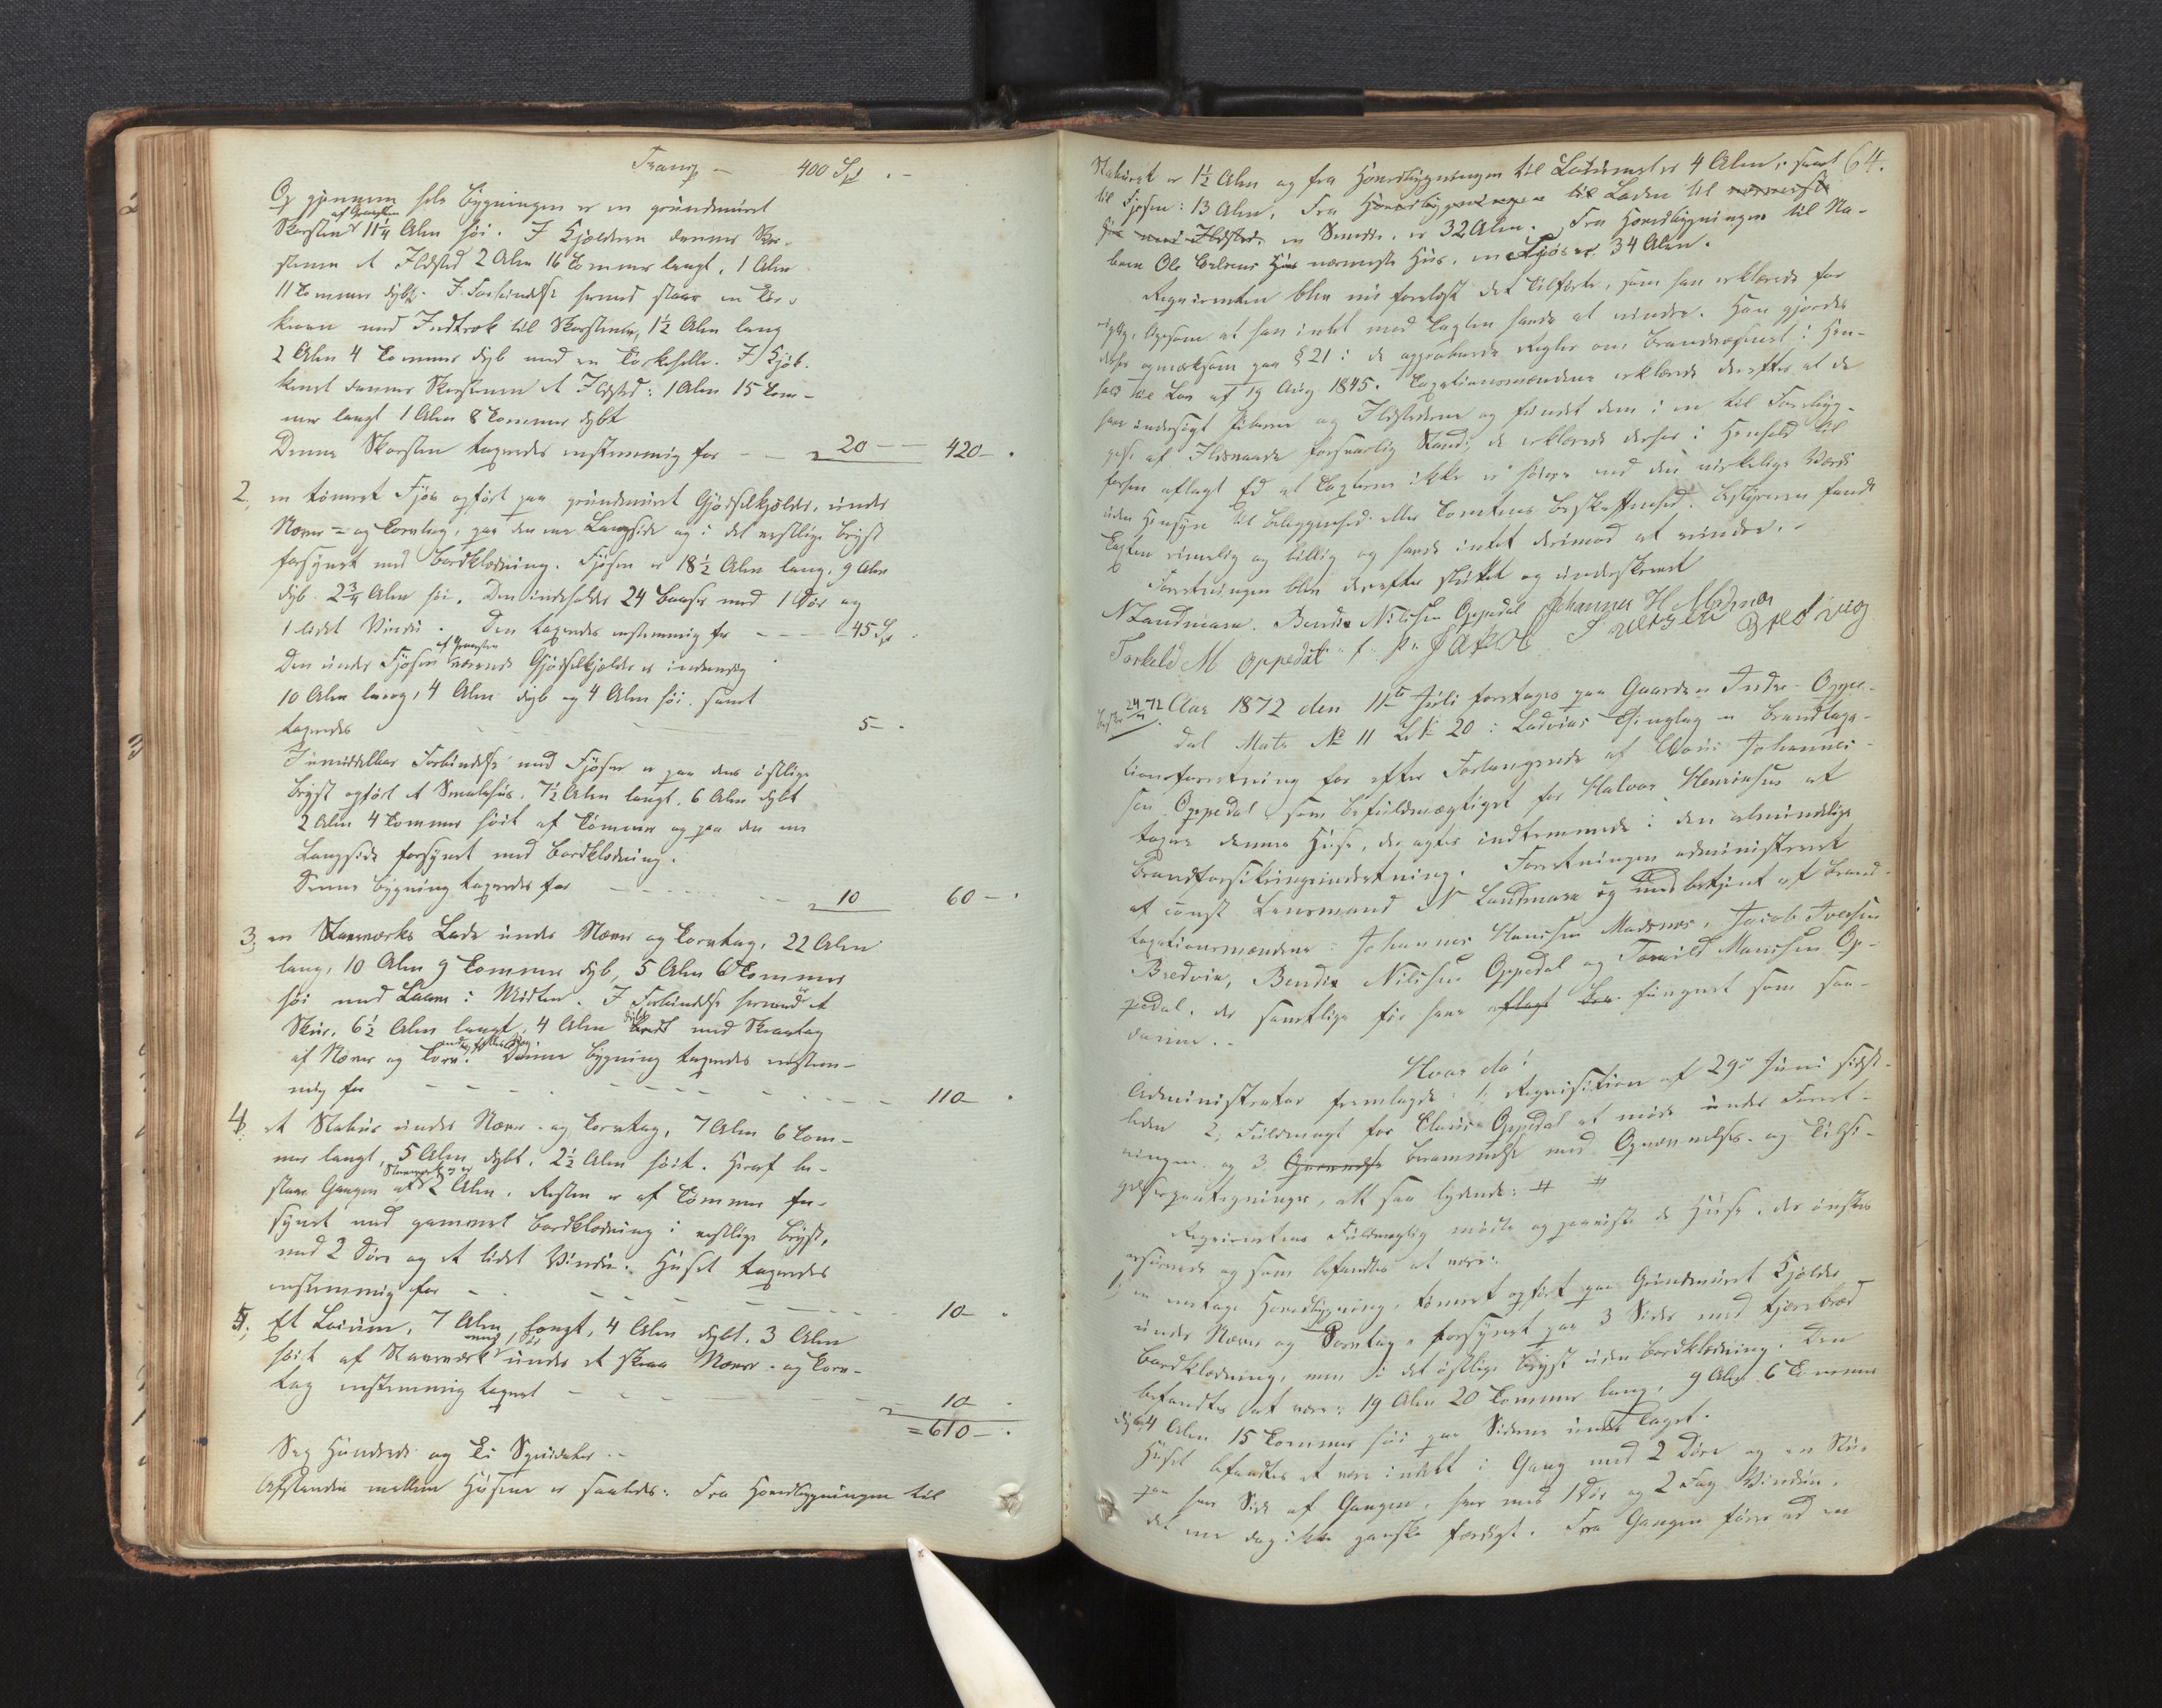 Transp – 400 Spd. –
Op gjennem hele Bygningen er en grundmuret
Skorsten af Graasten 11¼ Alen høi. I Kjelderen danner Skor-
stenen et Ildsted 2 Alen 16 Tommer langt, 1 Alen
11 Tommer dybt. I Forbindelse hermed staar en Tør-
keovn med Indtræk til Skorstenen, 1½ Alen lang
2 Alen 4 Tommer dyb med en Tørkehelle. I Kjøk-
kenet danner Skorstenen et Ildsted: 1 Alen 15 Tom-
mer langt 1 Alen 8 Tommer dybt
Denne Skorsten taxeredes enstemmig for – – 20 – – 420 – .
2, en tømret Fjøs opført paa grundmuret Gjødselkjelder, under
Næver- og Torvtag, paa den ene Langside og i det vestlige Bryst
forsynet med Bordklædning. Fjøsen er 18½ Alen lang, 9 Alen
dyb 2¾ Alen høi. Den indeholder 24 Baaser med 1 Dør og
1 lidet Vindu. Den taxeredes enstemmig for – – – 45 Spd
Den under Fjøsen af Graasten værende Gjødselkjelder er indvendig
10 Alen lang, 4 Alen dyb og 4 Alen høi, samt
taxeredes 5 – .
I umiddelbar Forbindelse med Fjøsen er paa dens østlige
Bryst opført et Smalehus, 7½ Alen langt, 6 Alen dybt
2 Alen 4 Tommer høit af Tømmer og paa den ene
Langside forsynet med Bordklædning.
Denne Bygning taxeredes for – – – 10 60 – .
3, en Stavværks Lade under Næver og Torvtag, 22 Alen
lang, 10 Alen 9 Tommer dyb, 5 Alen 6 Tommer
høi med Laave i Midten. I Forbindelse hermed er et
Skur, 6½ Alen langt, 4 Alen dybt bredt med Skraatag
af Næver og Torv. Denne Bygning taxeredes enstem-
mig for – – – – – – – 110 – .
4, et Stabur under Næver- og Torvtag, 7 Alen 6 Tom-
mer langt, 5 Alen dybt, 2½ Alen høit. Heraf be-
staar Gangen af Stavværk 2 Alen. Resten er af Tømmer for-
synet med gammel Bordklædning i vestlige Bryst,
med 2 Døre og et lidet Vindu. Huset taxeredes
enstemmig for – – – – – – 10 – .
5, Et Locum, 7 Alen langt, 4 Alen dybt, 3 Alen
høit af Stavværk med 1 Dør under et skraa Næver- og Torv-
tag enstemmig taxeret – – – 10 .
= 610 – .
Sex Hundrede og Ti Speciedaler. –
Afstanden mellem Husene er saaledes: Fra Hovedbygningen til
64.
Staburet er 1½ Alen og fra Hovedbygningen til Locumet er 4 Alen, samt
til Fjøsen: 13 Alen, Fra Hovedbygningen til Laden til nærmeste
Hus med Ildsted, en Smedie, er 32 Alen. Fra Hovedbygningen til Na-
boen Ole Carlsens Hus nærmeste Hus, en Fjøs er 34 Alen.
Requirenten blev nu forelæst det Tilførte, som han erklærede for
rigtig, ligesom at han intet mod Taxten havde at erindre. Han gjordes
derhos opmærksom paa § 21 i de approberede Regler om Brandvæsenet i Hen-
hold til Lov af 19 Aug 1845. Taxationsmændene erklærede derefter at de
have undersøgt Piberne og Ildstederne og fundet dem i en til Forebyg-
gelse af Ildsvaade forsvarlig Stand; de erklærede derhos i Henhold til
forhen aflagt Ed at Taxterne ikke er høiere end den virkelige Værdi
uden Hensyn til Beliggenhed eller Tomtens Beskaffenhed. Bestyreren fandt
Taxten rimelig og billig og havde intet derimod at erindre. –
Forretningen blev derefter sluttet og underskrevet
N Landmark. Bendix Nilssen Oppedal Johannes H Madsnes
Torkeld M oppedal m. f. p. Jakob Iversen Bredvig
24/7 72 Aar 1872 den 11te Juli foretoges paa Gaarden Indre-Oppe-
dal Matr No 11 LNo 20 i Ladvigs Thinglag en Brandtaxa-
tionsforretning for efter Forlangende af Claus Johannes-
sen Oppedal som befuldmægtiget for Halvor Henriksen at
taxere dennes Huse, der agtes indtemmede i den almindelige
Brandforsikringsindretning. Forretningen administreret
af const Lensmand N Landmark og med betjent af Brand-
taxationsmændene: Johannes Hanssen Madsnes, Jacob Iversen
Bredvik, Bendix Nilssen Oppedal og Torkild Monssen Op-
pedal, der samtlige før have aflagt fungeret som saa-
danne. –
Hvor da:
Administrator fremlagde: 1, Requisition af 29de Juni sidst-
leden 2, Fuldmagt for Claus Oppedal at møde under Forret-
ningen og 3, Berammelse med Opnævnelses- og Tilsi-
gelsespaategninger, alt saa lydende: # #
Requirentens Fuldmægtig mødte og paaviste de Huse, der ønskes
assurerede og som befandtes at være:
1, en enetages Hovedbygning, tømret opført paa Grundmuret Kjelder
under Næver og Torvtag, forsynet paa 3 Sider med tjærebræd
Bordklædning, men i det østlige Bryst uden Bordklædning. Den
befandtes at være: 19 Alen 20 Tommer lang, 9 Alen 6 Tommer
dyb, 4 Alen 15 Tommer høi paa Siderne under Taget.
Huset befandtes at være inddelt i Gang med 2 Døre og en Stue
paa hver Side af Gangen, hver med 1 Dør og 2 Fag Vinduer,
det ene dog ikke ganske færdigt. Fra Gangen fører ad en